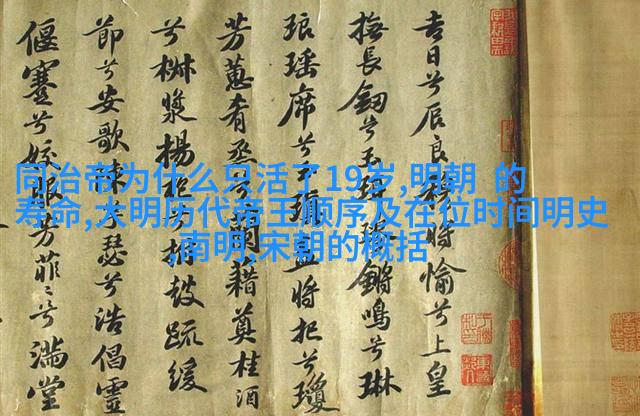 同治帝为什么只活了19岁,明朝 的
寿命,大明历代帝王顺序及在位时间明史
,南明,宋朝的概括
吉日兮辰良穆將愉兮上皇
撫長劒兮玉珥璆鏘鳴兮琳
琅瑶席兮玉瑱盍將把兮瓊
芳蕙肴烝兮蘭藉奠桂酒
兮椒漿揚枹兮拊鼓疏緩
節兮安歌瑟兮浩倡靈
偃蹇兮姣服芳菲〻兮滿堂